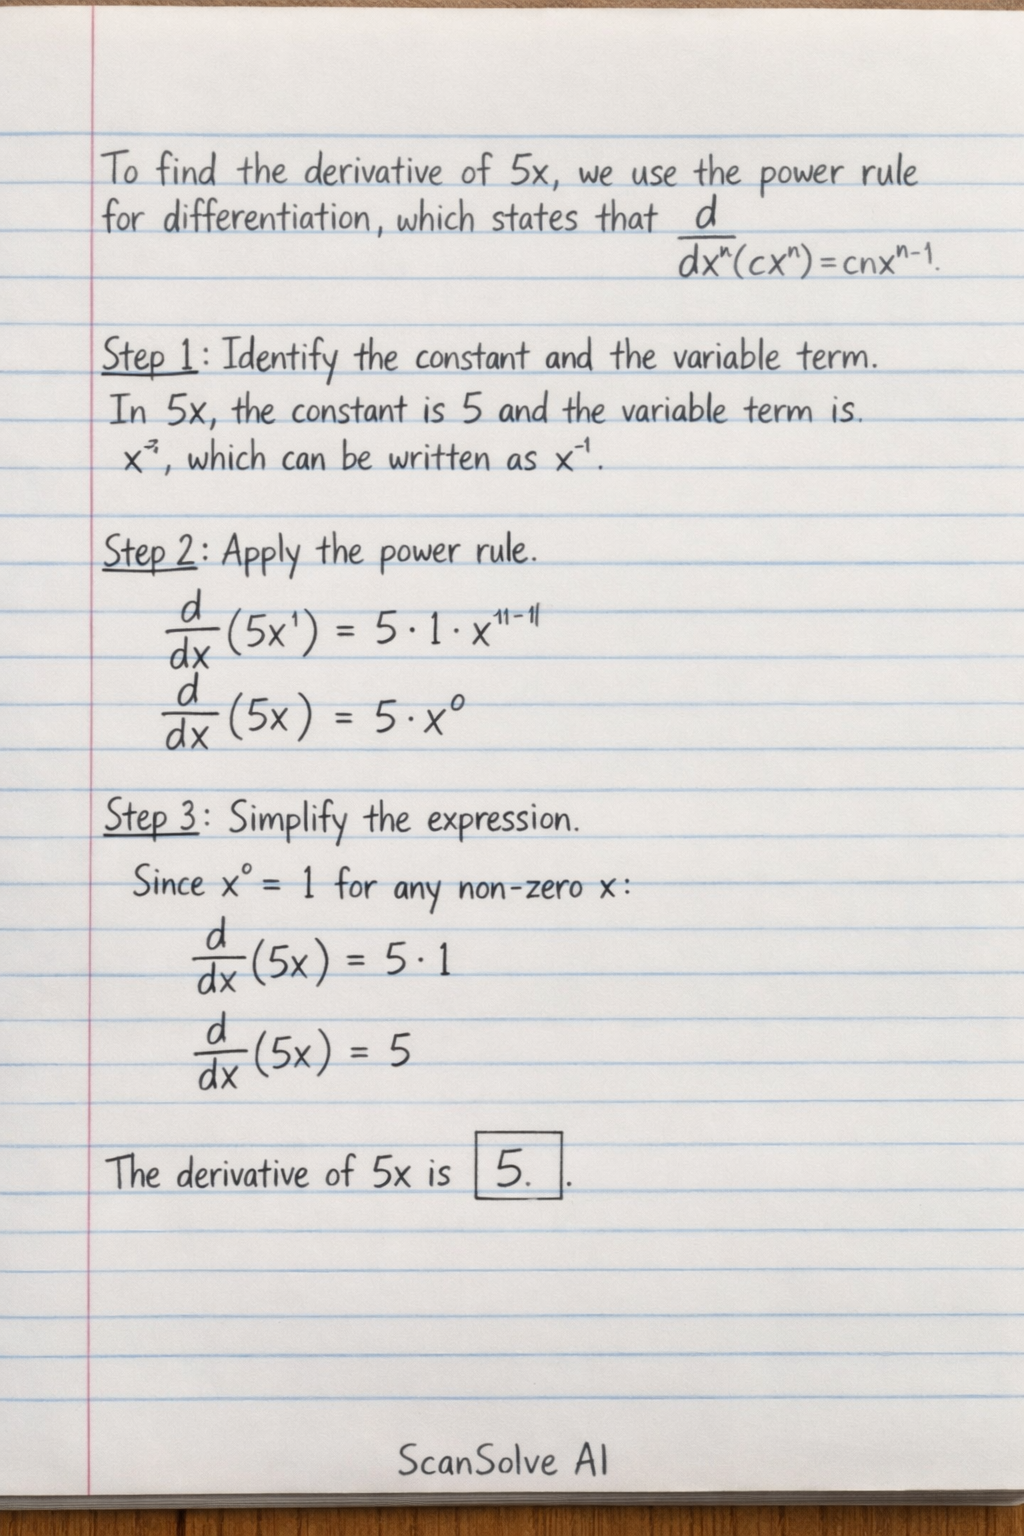 To find the derivative of 5x, we use the power rule
for differentiation, which states that d
dxⁿ(cxⁿ) = cnxⁿ⁻¹.
Step 1: Identify the constant and the variable term.
In 5x, the constant is 5 and the variable term is.
x, which can be written as x⁻¹.
Step 2: Apply the power rule.
d
dx (5x¹) = 5 · 1 · x¹¹⁻¹¹
d
dx (5x) = 5 · x⁰
Step 3: Simplify the expression.
Since x⁰ = 1 for any non-zero x:
d
dx (5x) = 5 · 1
d
dx (5x) = 5
The derivative of 5x is 5. .
ScanSolve AI